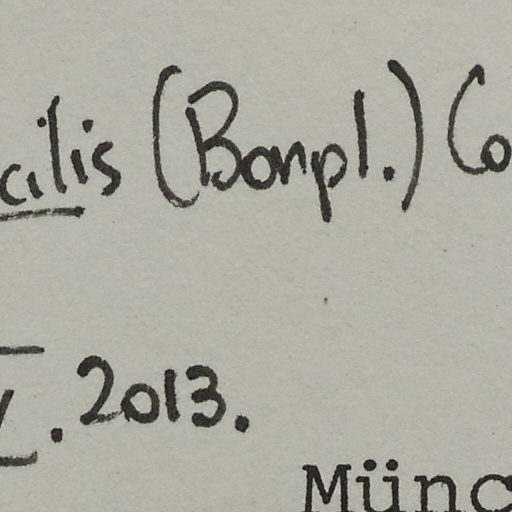 cilis (Bonpl.) Co
.2013.
Münc